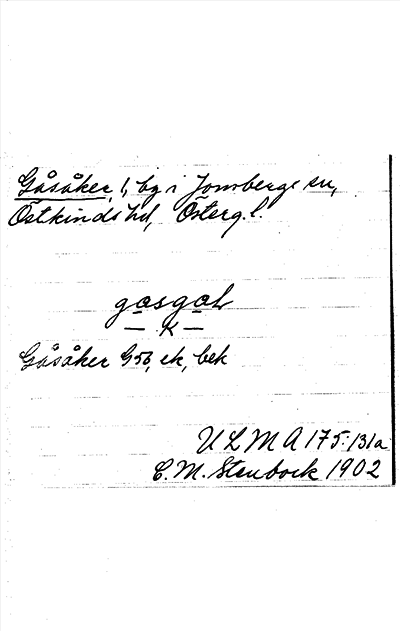 Gåsåker, 1, by i Jonsbergs sn,
Östkinds hd, Österg. l.
gasgah
— K —
Gåsåker G56, ek, bek
ULMA 175:131a
C. M. Stenbock 1902